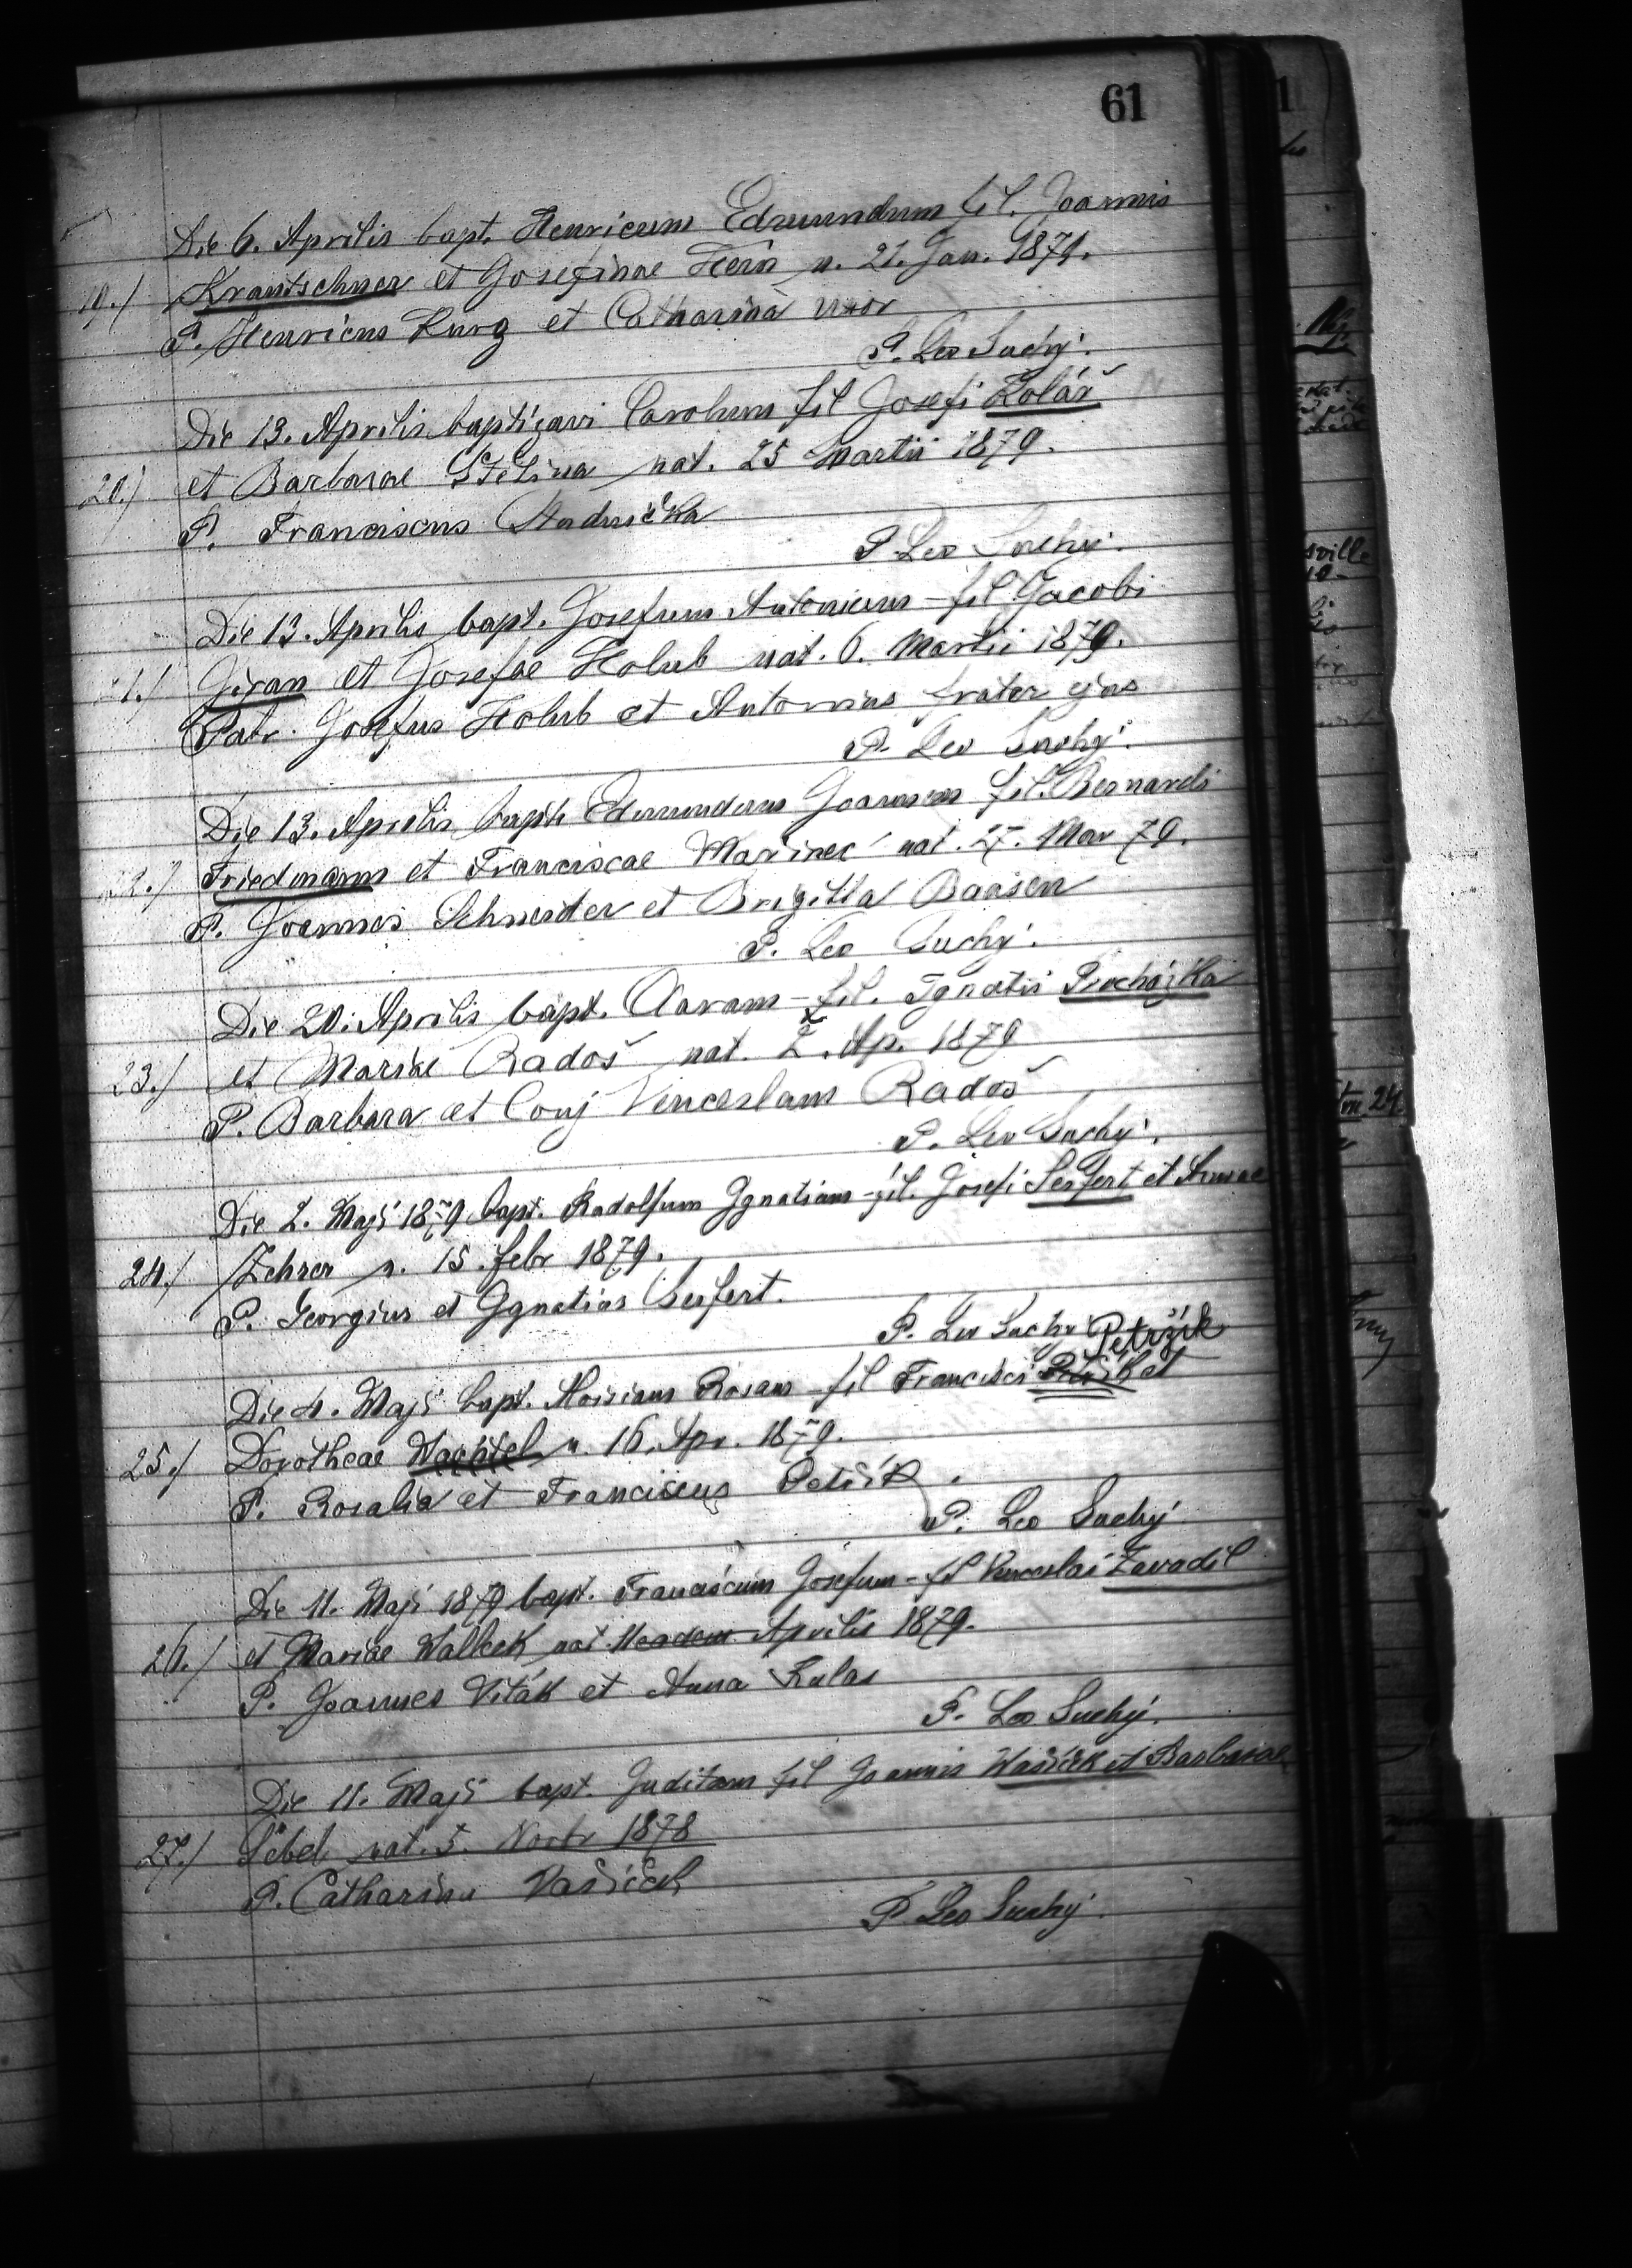 61
Die 6. Aprilis bapt. Henricum Edmundum fil. Joannis
19./ Krantschner et Josefinae Hein n. 21. Jan. 1879.
P. Henricus Kurz et Catharina uxor
P. Leo Suchý.
Die 13. Aprilis baptizavi Carolum fil Josefi Kolář
20./ et Barbarae nat. 25 Martii 1879.
P. Franciscus
P. Leo Suchý.
Die 13. Aprilis bapt. Josefum Antonium - fil. Jacobi
21./ Jiran et Josefae Holub nat. 6. Martii 1879.
Patr. Josefus Holub et Antonius frater ejus
P. Leo Suchý.
Die 13. Aprilis bapt. Edmundum Joannem fil. Bernardi
22./ Friedmann et Franciscae nat. 27. Mar 79.
P. Joannes Schneider et Brigitta Baasen
P. Leo Suchý.
Die 20. Aprilis bapt. - fil. Ignatii Procházka
23./ et Mariae Radoš nat. Ap. 1879
P. Barbara et Conj Venceslaus Radoš
P. Leo Suchý.
Die 2. Maji 1879 bapt. Radolfum Ignatium - fil. Josefi Seifert et Annae
24./ Zehrer n. 15. febr 1879.
P. Georgius et Ignatius Seifert.
P. Leo Suchý Petržik
Die 4. Maji bapt. Rosam - fil Francisci et
25./ Dorotheae Wachtel n. 16. Apr. 1879.
P. Rosalia et Franciscus Petřík.
P. Leo Suchý
Die 11. Maji 1879 bapt. Franciscum Josefum - fil Venceslai Zavadil
26./ et Mariae nat. Aprilis 1879.
P. Joannes Viták et Anna Kulas
P. Leo Suchý.
Die 11. Maji bapt. Juditam fil Joannis Wašíček et Barbarae
27./ nat. 5. Novbr 1878
P. Catharina Vašíček
P. Leo Suchý.